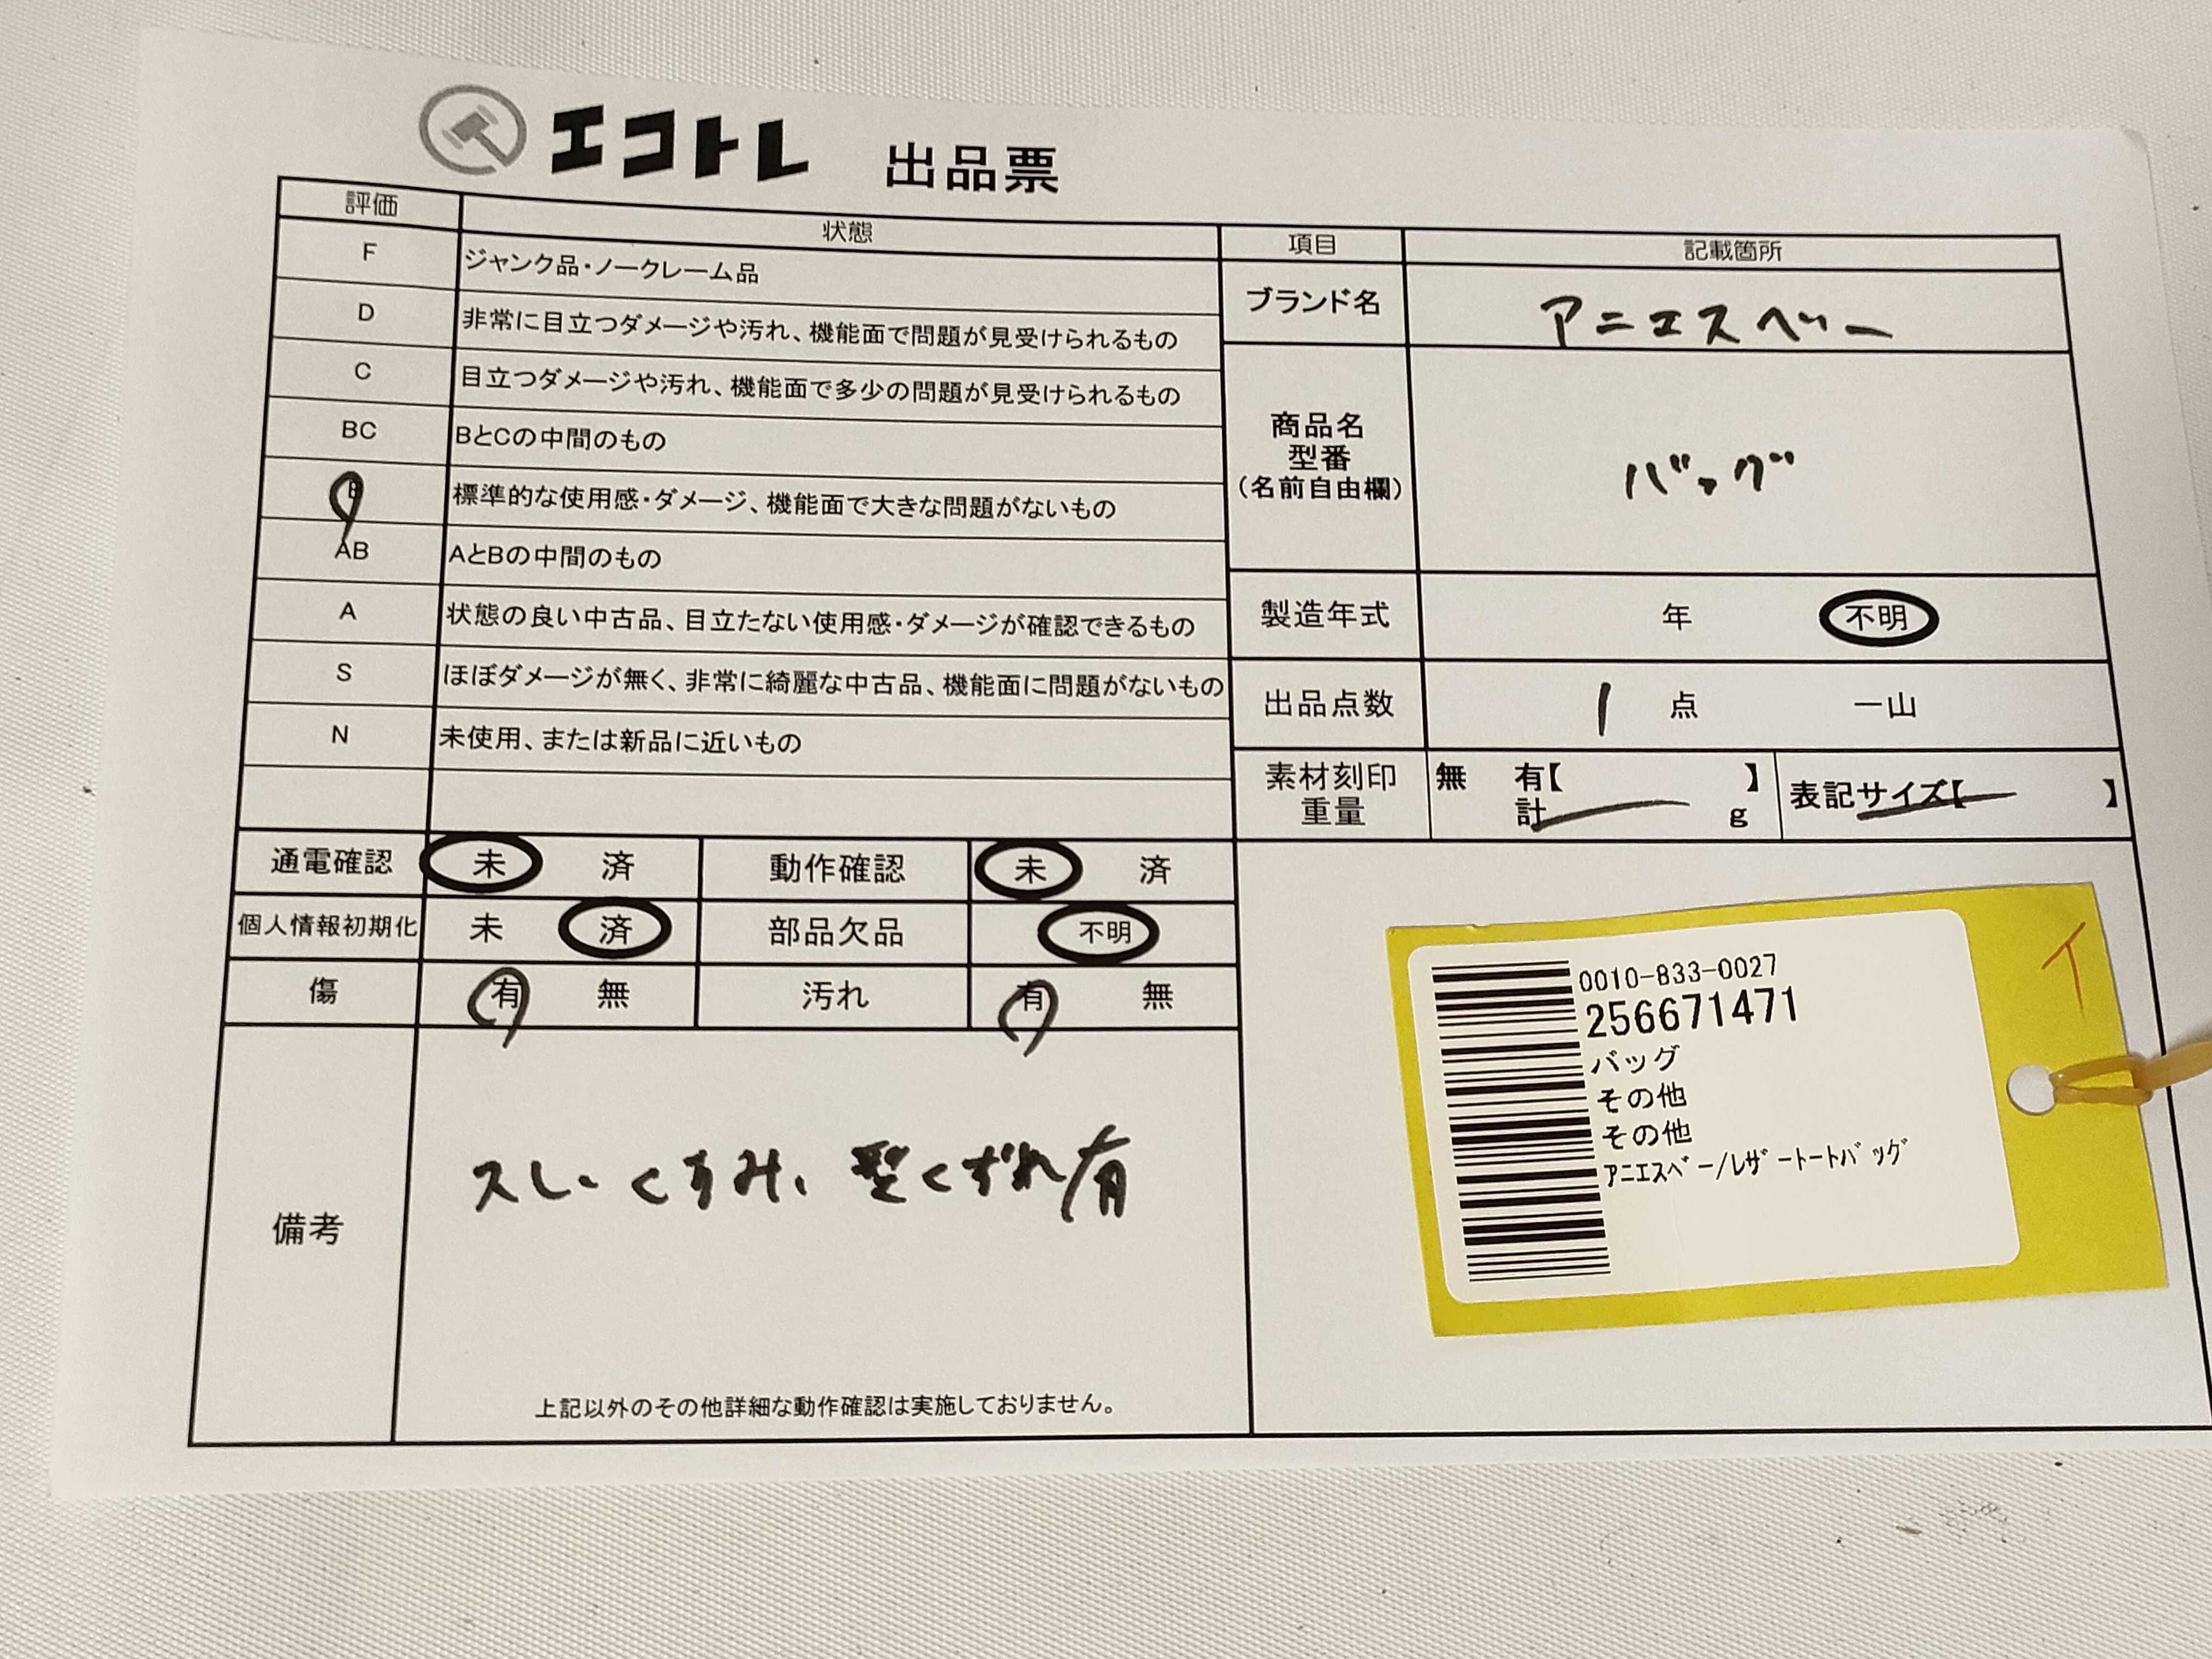 エコトレ 出品票
評価 状態
F ジャンク品・ノークレーム品
D 非常に目立つダメージや汚れ、機能面で問題が見受けられるもの
C 目立つダメージや汚れ、機能面で多少の問題が見受けられるもの
BC BとCの中間のもの
B 標準的な使用感・ダメージ、機能面で大きな問題がないもの
AB AとBの中間のもの
A 状態の良い中古品、目立たない使用感・ダメージが確認できるもの
S ほぼダメージが無く、非常に綺麗な中古品、機能面に問題がないもの
N 未使用、または新品に近いもの
項目 記載箇所
ブランド名 アニエスベー
商品名
型番
(名前自由欄)
バッグ
製造年式 年 不明
出品点数 1 点 一山
素材刻印 無 有【 】
重量 計 g
表記サイズ【 】
通電確認 未 済 動作確認 未 済
個人情報初期化 未 済 部品欠品 不明
傷 有 無 汚れ 有 無
備考
スレ、くすみ、型くずれ有
上記以外のその他詳細な動作確認は実施しておりません。
0010-833-0027
256671471
バッグ
その他
その他
ｱﾆｴｽﾍﾞｰ/ﾚｻﾞｰﾄｰﾄﾊﾞｯｸﾞ
イ